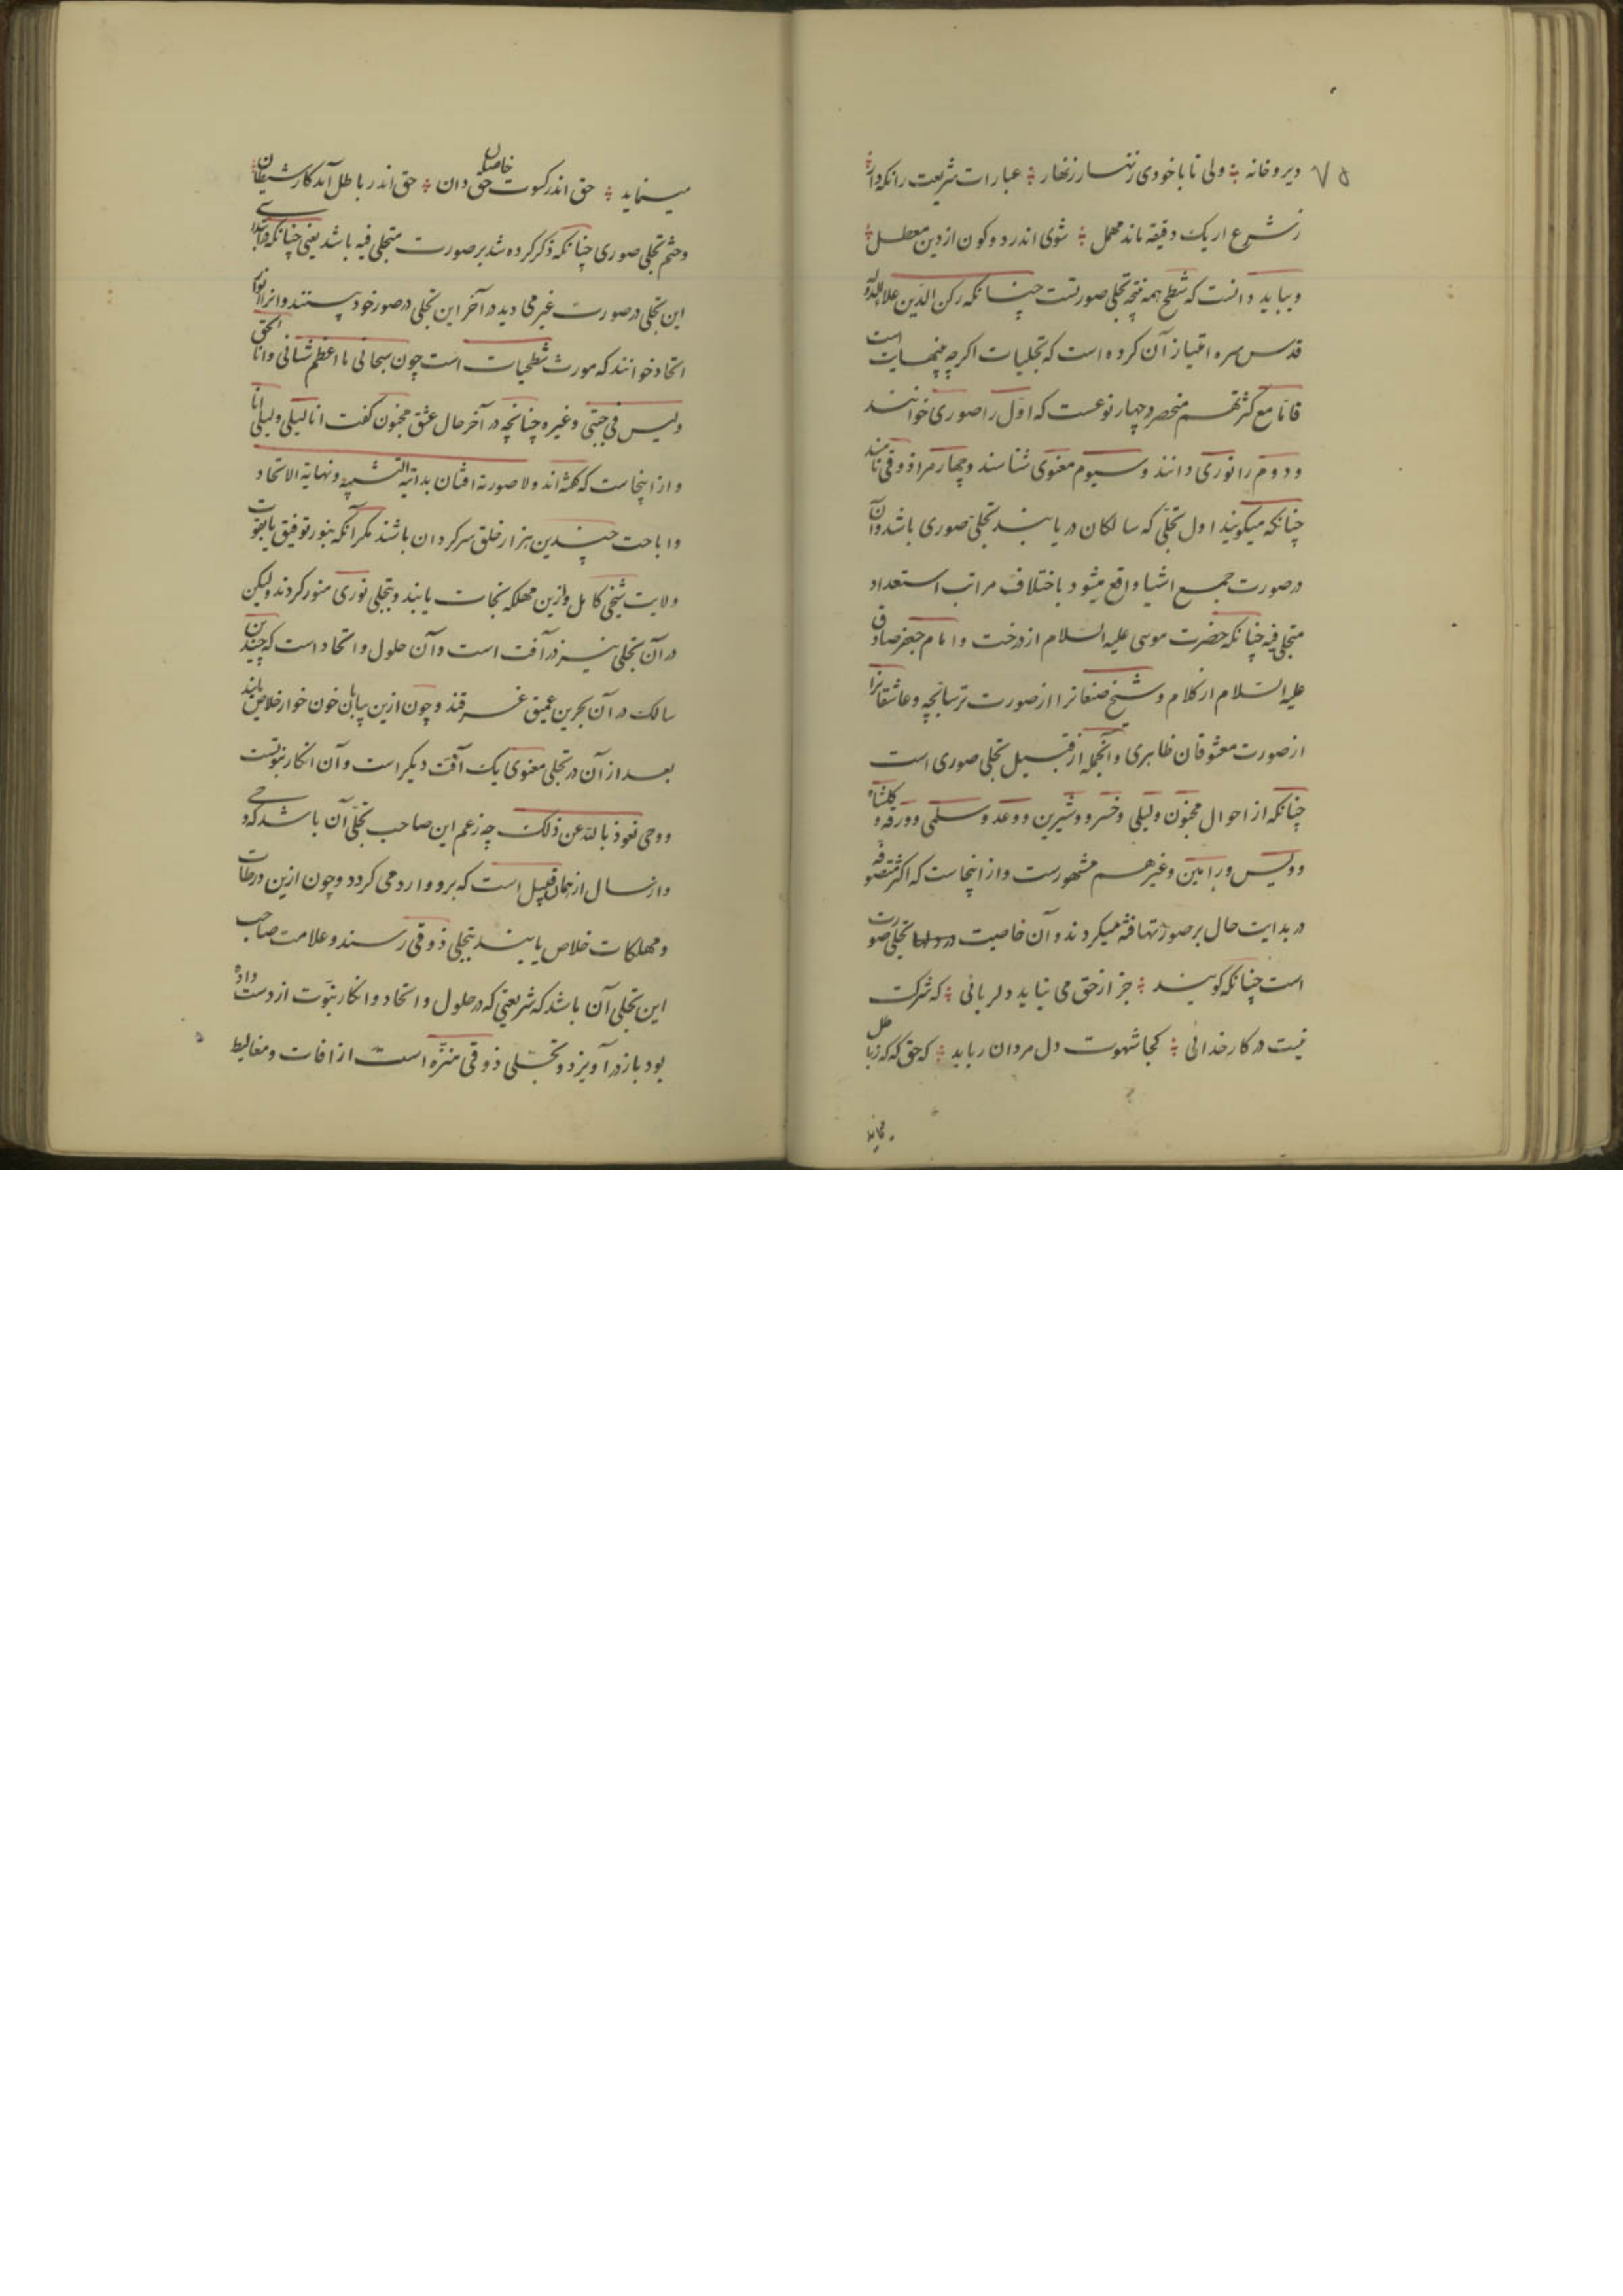 ۷۵
دیر و خانه ؞ ولی تا با خودی زنهار زنهار ؞ عبارات شریعت را نکه دار ؞
ز شرع ار یک دقیقه ماند مهمل ؞ شوی اندر دو کون از دین معطل ؞
و بباید دانست که شطح همه نتیجه تجلی صوریست چنانکه رکن الدین علاء الدوله
قدس سره امتیاز آن کرده است که تجلیات اکرچه بینهایت است
فاما مع کثرتهم منحصر و چهار نوعست که اول را صوری خوانند
و دوم را نوری دانند و سیوم معنوی شناسند و چهارم را ذوقی نامند
چنانکه میکویند اول تجلی که سالکان دریابند تجلی صوری باشد و آن
در صورت جمیع اشیا واقع میشود باختلاف مراتب استعداد
متجلی فیه چنانکه حضرت موسی علیه السلام از درخت و امام جعفر صادق
علیه السلام از کلام و شیخ صنعانرا از صورت ترسابچه و عاشقانرا
از صورت معشوقان ظاهری و آنجمله از قبیل تجلی صوری است
چنانکه از احوال مجنون و لیلی و خسرو و شیرین و وعد و سلمی و ورقه و کلشاه
و ویس و رامین و غیرهم مشهورست و از اینجاست که اکثر متصوفه
در بدایت حال بر صور تهافته میکردند و آن خاصیت تجلی صورت
است چنانکه کویند ؞ جز از حق می نیاید دلربائی ؞ که شرکت
نیست در کار خدائی ؞ کجا شهوت دل مردان رباید ؞ که حق که که ز باطل
می نماید
مینماید ؞ حق اندر کسوت خاصان حق دان ؞ حق اندر باطل آمد کار شیطان ؞
وختم تجلی صوری چنانکه ذکر کرده شد بر صورت متجلی فیه باشد یعنی چنانکه در ابتدای
این تجلی در صورت غیر می دید در آخر این تجلی در صور خود بینند و انرا انوار
اتحاد خوانند که مورث شطحیات است چون سبحانی ما اعظم شانی و انا الحق
و لیس فی جبتی و غیره چنانچه در آخر حال عشق مجنون کفت انا لیلی و لیلی انا
و از اینجاست که کفته‌اند ولا صورة افتان بدایة التشبیه و نهایة الاتحاد
و اباحت چندین هزار خلق سرکردان باشند مکر آنکه بنور توفیق یا بقوت
ولایت شیخی کامل وازین مهلکه نجات یابند و بتجلی نوری منور کردند ولیکن
در آن تجلی نیز در آفت است و آن حلول و اتحاد است که چندین
سالک در آن بحرین عمیق غرقند و چون ازین بیابان خون خوار خلاص یابند
بعد از آن در تجلی معنوی یک آفت دیکر است و آن انکار نبوتست
و وحی نعوذ بالله عن ذلک چه زعم این صاحب تجلی آن باشد که وحی
و ارسال از همان قبیل است که بر او وارد می کردد و چون ازین ورطات
و مهلکات خلاص یابند بتجلی ذوقی رسند و علامت صاحب
این تجلی آن باشد که شریعتی که در حلول و اتحاد و انکار نبوت از دست داده
بود باز در آویزد و تجلی ذوقی منزه است از افات و مغالیط